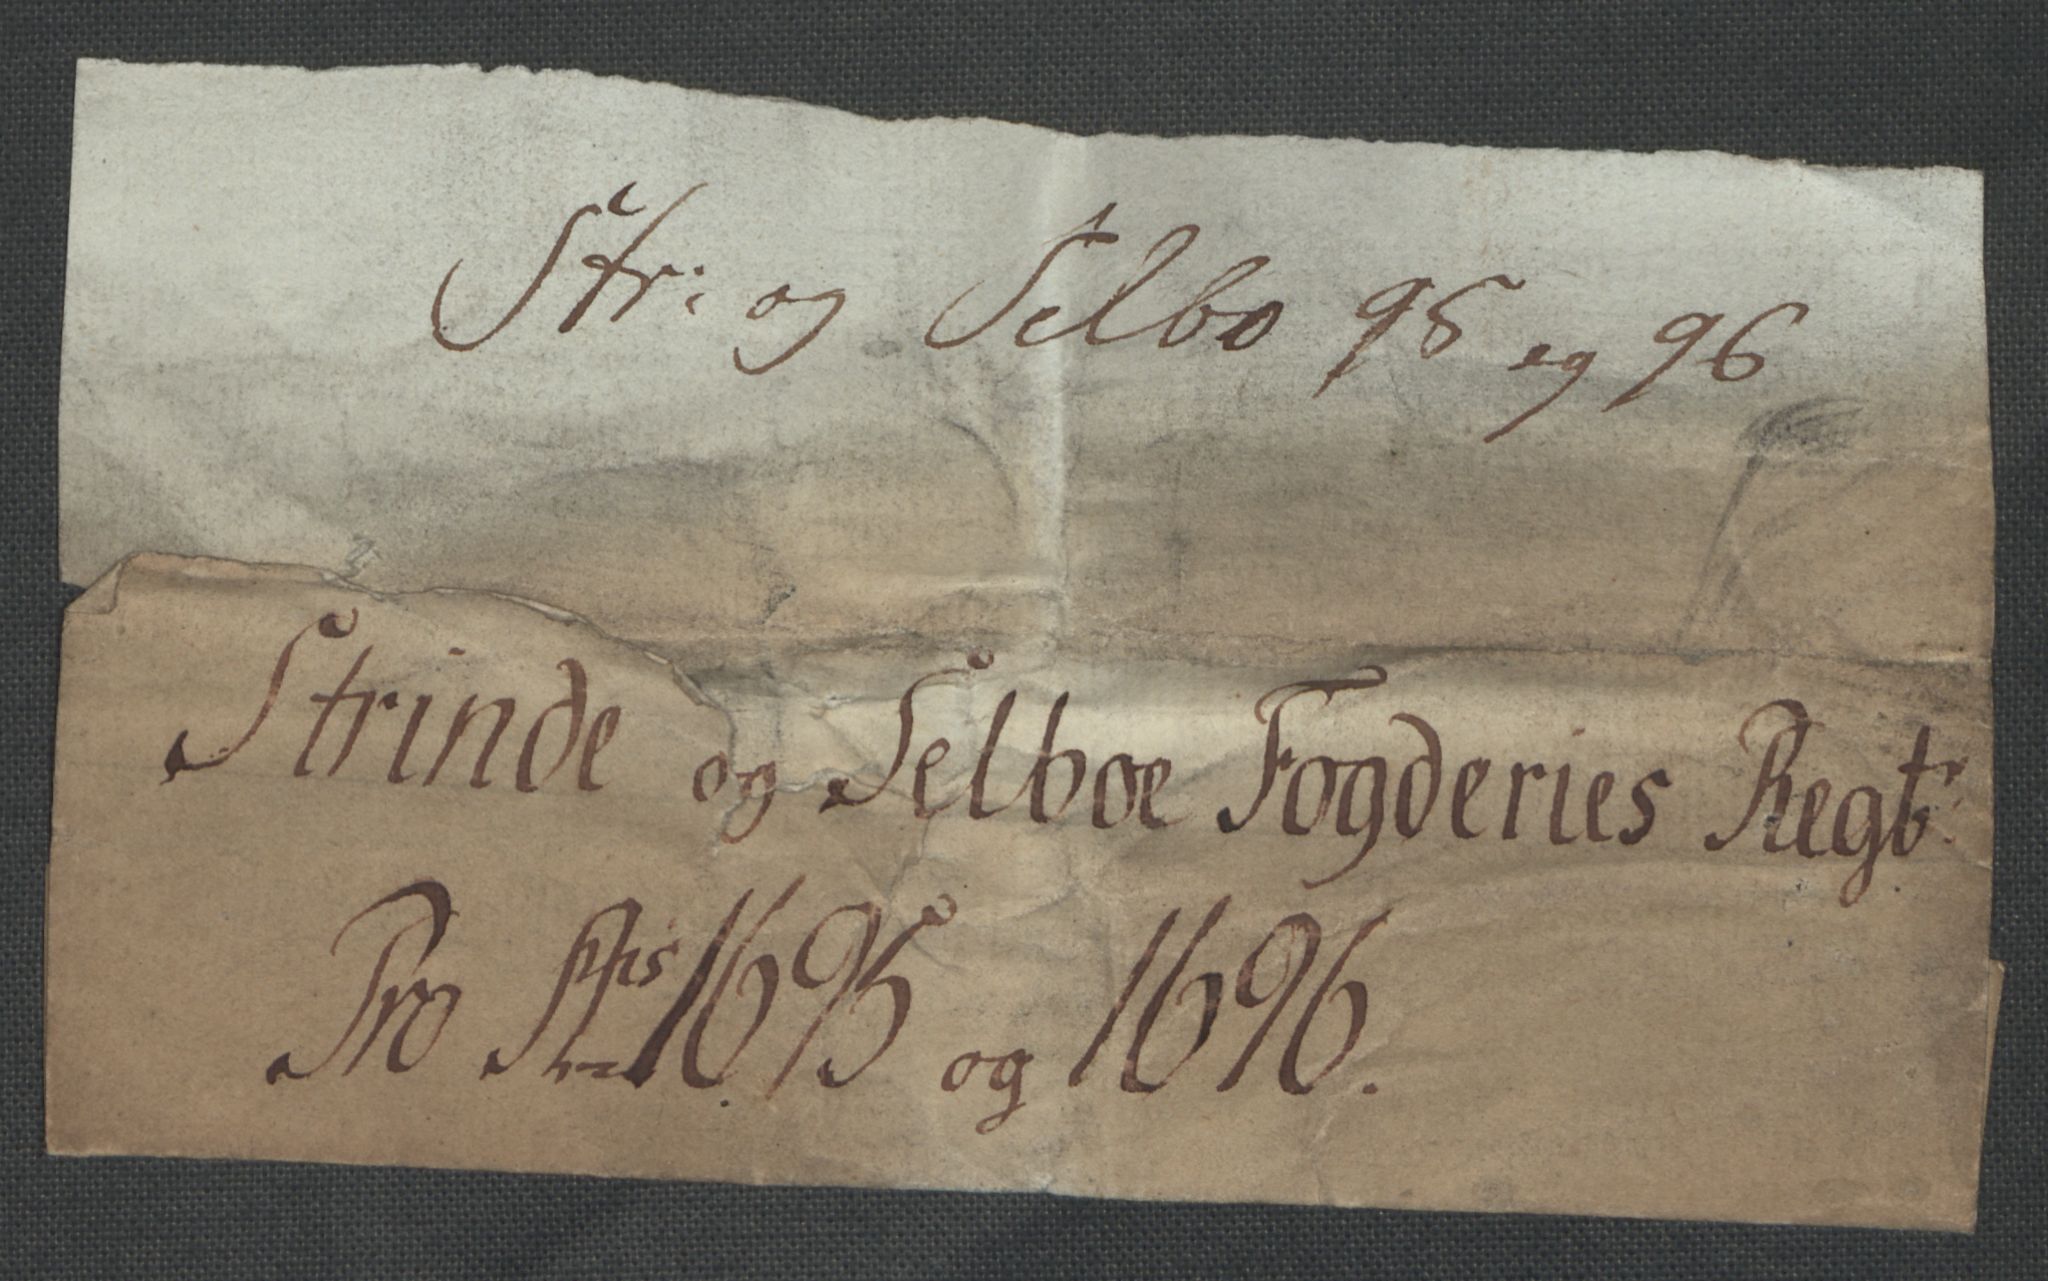 Str: og Selbo 95 og 96
Strinde og Selboe Fogderies Regtr:
Pro 1695 og 1696.